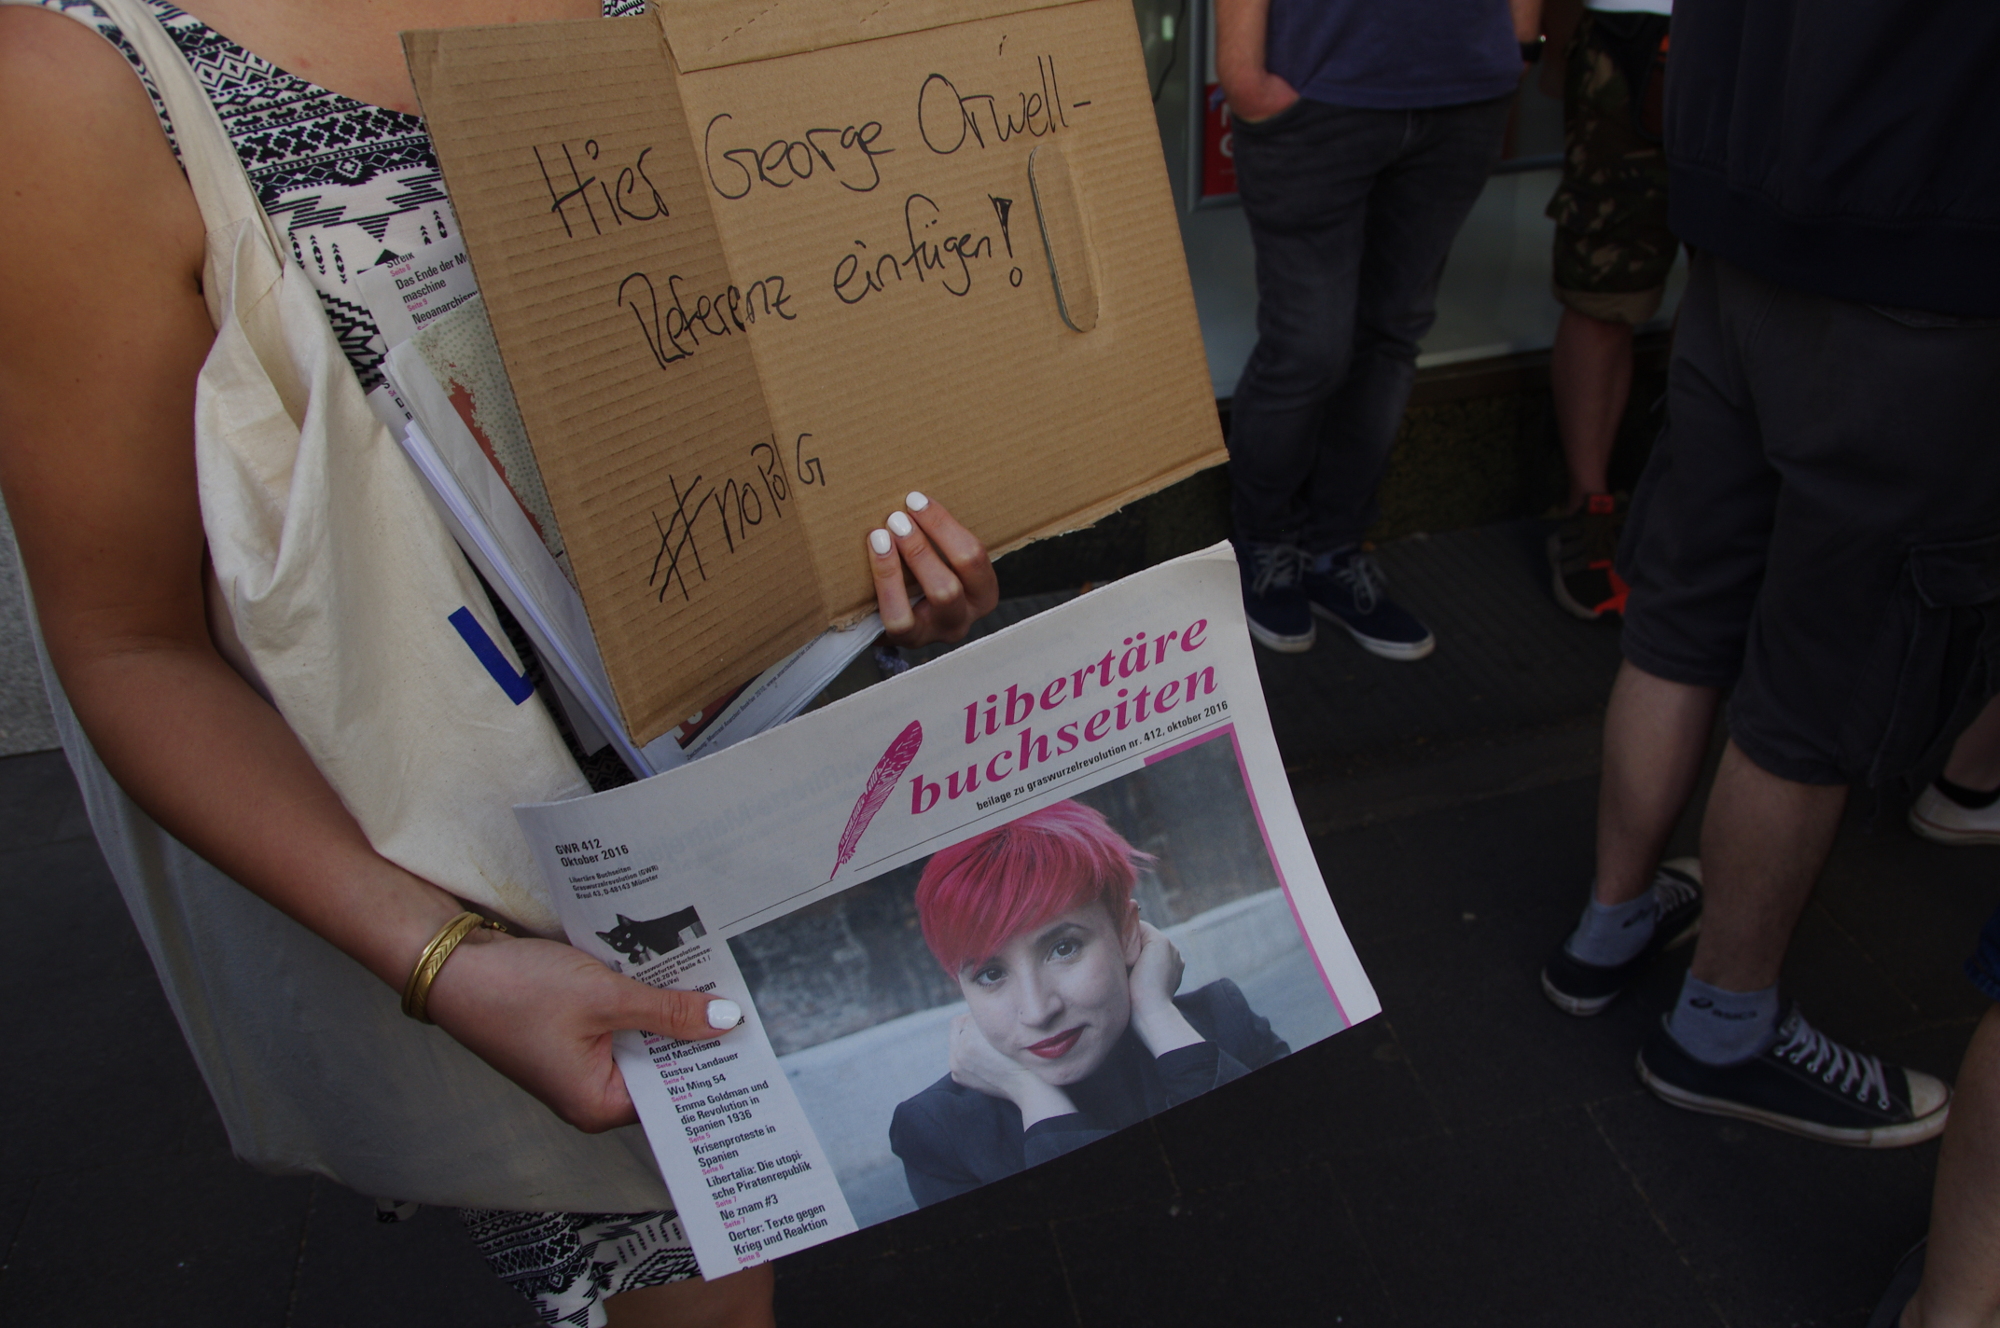 Hier George Orwell-
Referenz einfügen!
#noPolG
Streik
Seite 8
Das Ende der M
maschine
Seite 9
Neoanarchism
libertäre
buchseiten
beilage zu graswurzelrevolution nr. 412, oktober 2016
GWR 412
Oktober 2016
Libertäre Buchseiten
Graswurzelrevolution (GWR)
Breul 43, D-48143 Münster
Graswurzelrevolution
Frankfurter Buchmesse:
.10.2016, Halle 4.1 /
Anarchi
und Machismo
Seite 3
Gustav Landauer
Seite 4
Wu Ming 54
Seite 4
Emma Goldman und
die Revolution in
Spanien 1936
Seite 5
Krisenproteste in
Spanien
Seite 6
Libertalia: Die utopi-
sche Piratenrepublik
Seite 7
Ne znam #3
Seite 7
Oerter: Texte gegen
Krieg und Reaktion
Seite 8
asics